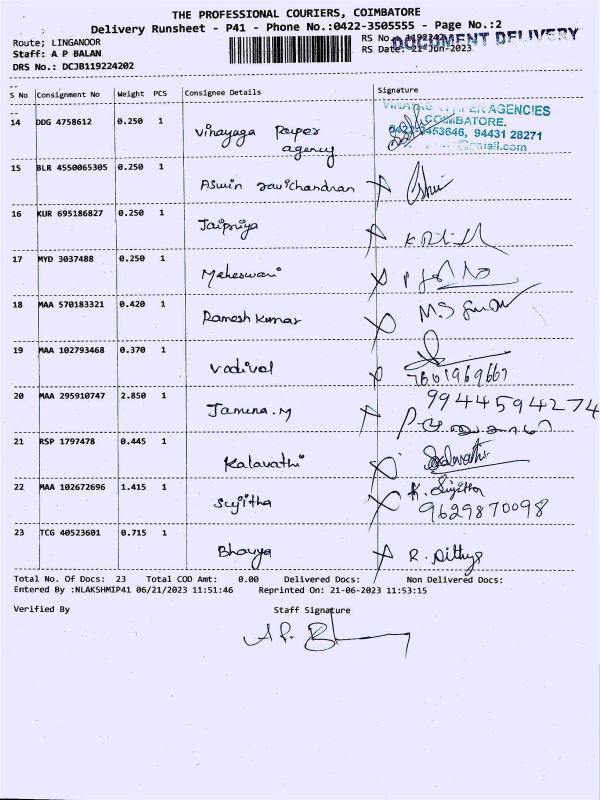 THE PROFESSIONAL COURIERS, COIMBATORE
Delivery Runsheet - P41 - Phone No.:0422-3505555 - Page No.:2
Route; LINGANOOR
RS No.
Staff: A P BALAN
RS Date: 21-Jun-2023
DOCUMENT DELIVERY
DRS No.: DCJB119224202
S No Consignment No Weight PCS Consignee Details Signature
14 DDG 4758612 0.250 1 Vinayaga Paper agency
AGENCIES
COIMBATORE.
94431 28271
15 BLR 4550065305 0.250 1 Aswin ravichandran
16 KUR 695186827 0.250 1 Jaipriya
17 MYD 3037488 0.250 1 Maheswari
18 MAA 570183321 0.420 1 Ramesh kumar
19 MAA 102793468 0.370 1 Vadivel
7601969667
20 MAA 295910747 2.850 1 Jamuna.M
9944594274
21 RSP 1797478 0.445 1 Kalavathi
22 MAA 102672696 1.415 1 Sujitha K. Sujitha
9629870098
23 TCG 40523601 0.715 1 Bhavya
Total No. Of Docs: 23 Total COD Amt: 0.00 Delivered Docs: Non Delivered Docs:
Entered By :NLAKSHMIP41 06/21/2023 11:51:46 Reprinted On: 21-06-2023 11:53:15
Verified By Staff Signature